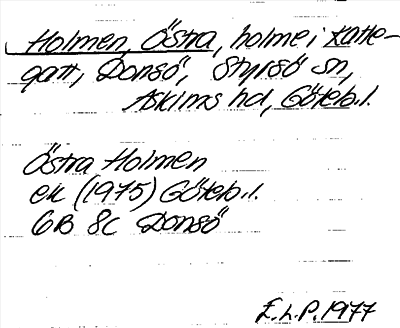 Holmen, Östra, holme i Katte-
gatt, Donsö, Styrsö sn,
Askims hd, Göteb.l.
Östra Holmen
ek (1975) Göteb.l.
6B 8C Donsö
E.L.P. 1977